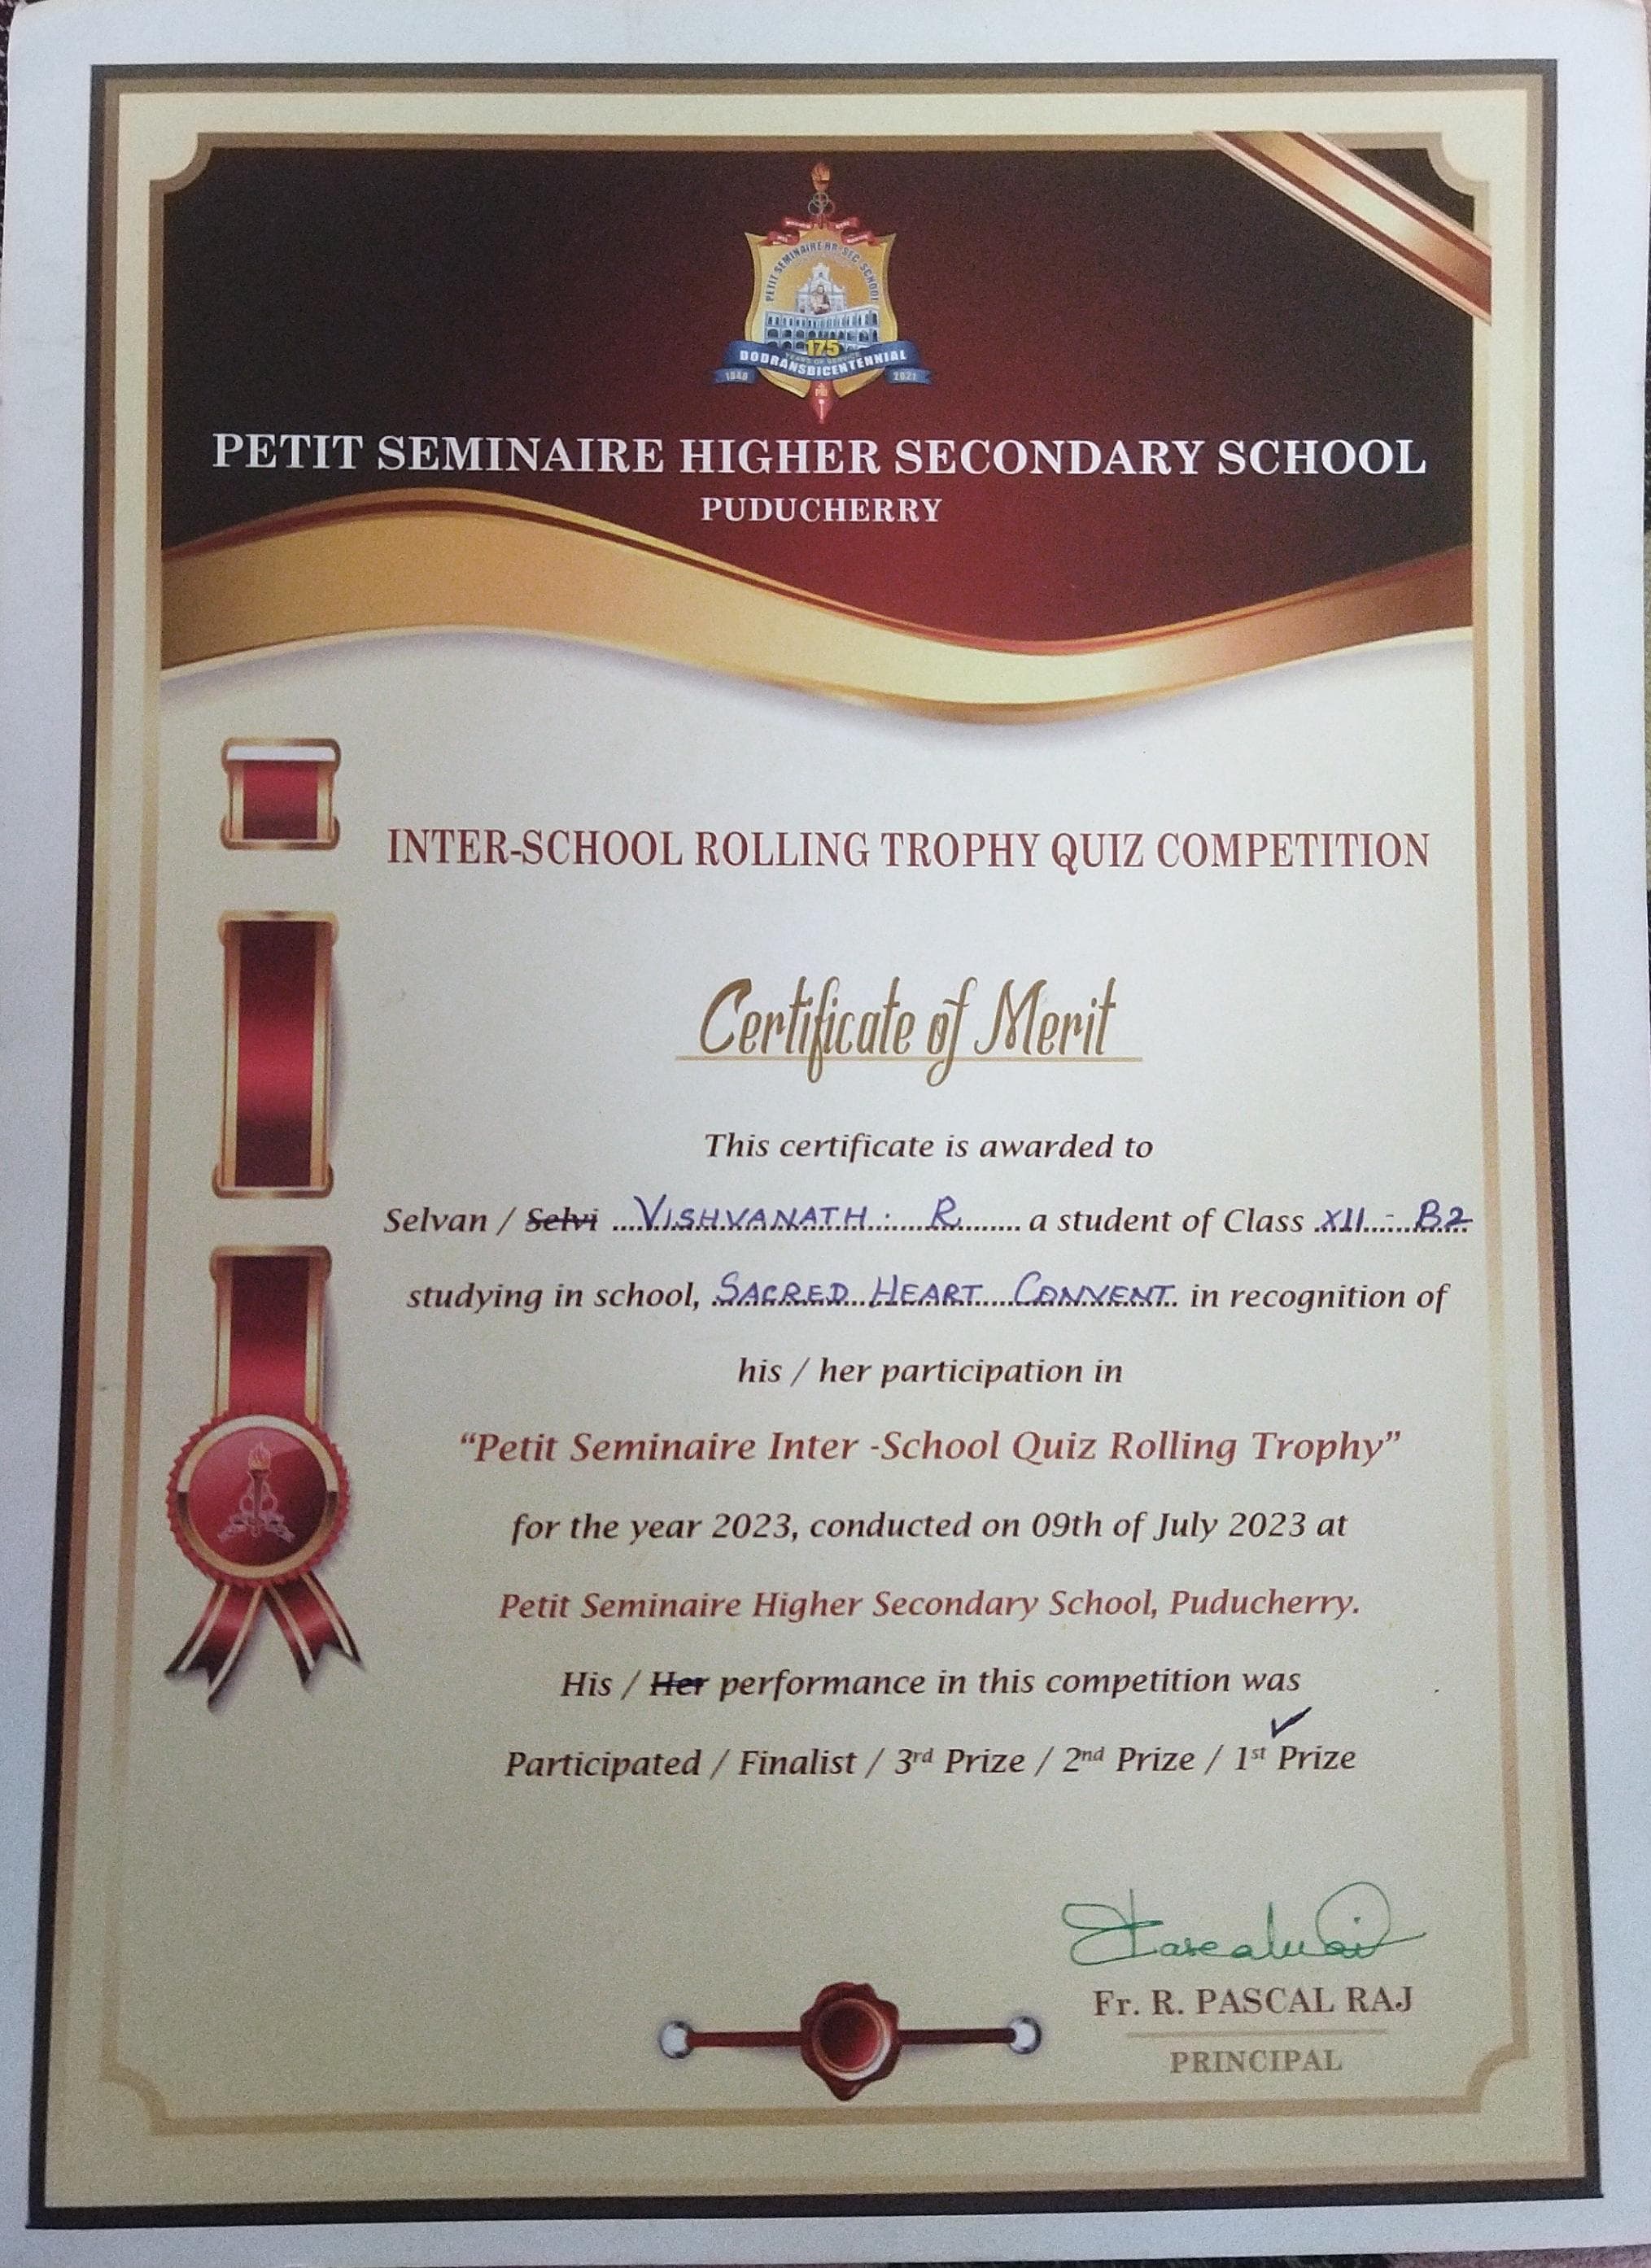 PETIT SEMINAIRE HR. SEC. SCHOOL
175
YEARS OF SERVICE
DODRANSBICENTENNIAL
PETIT SEMINAIRE HIGHER SECONDARY SCHOOL
PUDUCHERRY
INTER-SCHOOL ROLLING TROPHY QUIZ COMPETITION
Certificate of Merit
This certificate is awarded to
Selvan / Selvi VISHVANATH. R. a student of Class XII - B2
studying in school, SACRED HEART CONVENT in recognition of
his / her participation in
“Petit Seminaire Inter -School Quiz Rolling Trophy”
for the year 2023, conducted on 09th of July 2023 at
Petit Seminaire Higher Secondary School, Puducherry.
His / Her performance in this competition was
Participated / Finalist / 3rd Prize / 2nd Prize / 1st Prize
Fr. R. PASCAL RAJ
PRINCIPAL